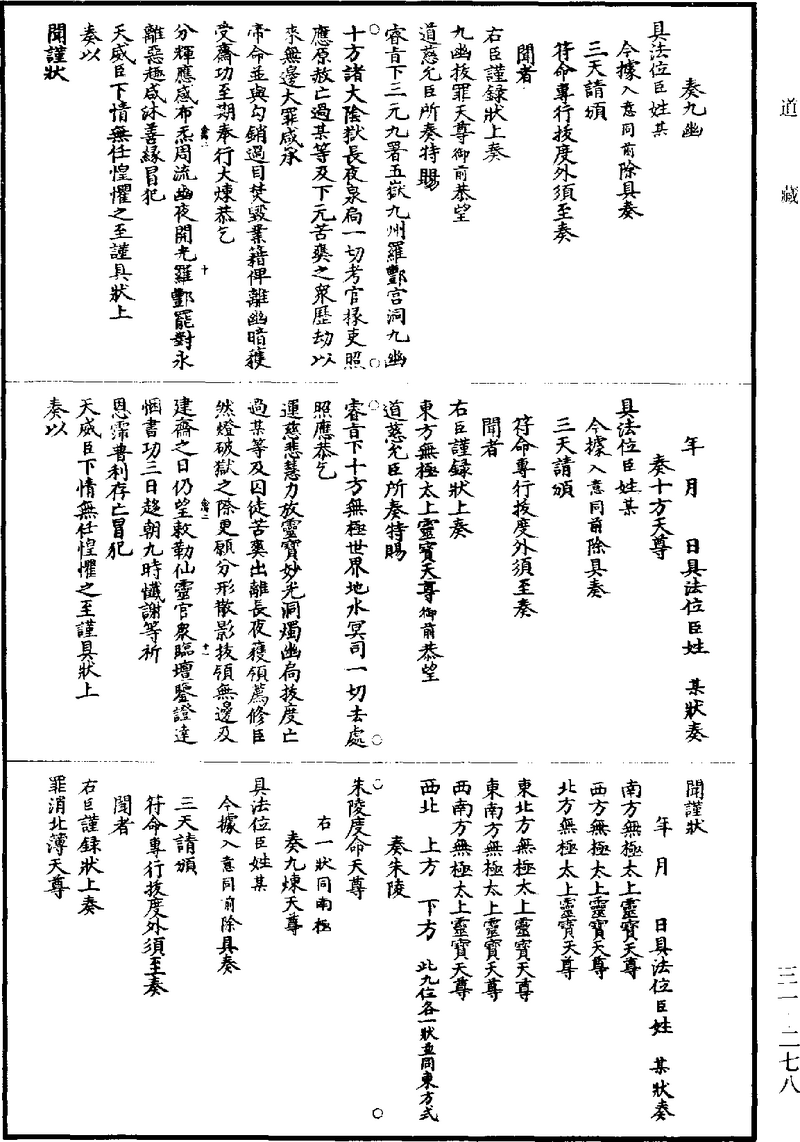 道藏
奏九幽
具法位臣姓某
今據入意同前除具奏
三天請頒
符命專行拔度外須至奏
聞者
右臣謹錄狀上奏
九幽拔罪天尊御前恭望
道慈允臣所奏特賜
睿旨下三元九署五嶽九州羅酆宮洞九幽
十方諸大陰獄長夜泉扃一切考官掾吏照
應原赦亡過某等及下元苦爽之衆歷劫以
來無邊大罪咸承
帝命並與勾銷過目焚毀業籍俾離幽暗獲
受齋功至期奉行大煉恭乞
分輝應感布炁周流幽夜開光羅酆罷對永
離惡趣咸沐善緣冒犯
天威臣下情無任惶懼之至謹具狀上
奏以
聞謹狀
年月　日具法位臣姓　某狀奏
奏十方天尊
具法位臣姓某
今據入意同前除具奏
三天請頒
符命專行拔度外須至奏
聞者
右臣謹錄狀上奏
東方無極太上靈寶天尊御前恭望
道慈允臣所奏特賜
睿旨下十方無極世界地水冥司一切去處
照應恭乞
運慈悲慧力放靈寶妙光洞燭幽扃拔度亡
過某等及囚徒苦爽出離長夜獲領薦修臣
然燈破獄之際更願分形散影拔領無邊及
建齋之日仍望敕勒仙靈官衆臨壇鑒證達
悃書功三日超朝九時懺謝等祈
恩霈普利存亡冒犯
天威臣下情無任惶懼之至謹具狀上
奏以
聞謹狀
年月　日具法位臣姓　某狀奏
南方無極太上靈寶天尊
西方無極太上靈寶天尊
北方無極太上靈寶天尊
東北方無極太上靈寶天尊
東南方無極太上靈寶天尊
西南方無極太上靈寶天尊
西北　上方　下方　此九位各一狀並同東方式
奏朱陵
朱陵度命天尊
右一狀同南極
奏九煉天尊
具法位臣姓某
今據入意同前除具奏
三天請頒
符命專行拔度外須至奏
聞者
右臣謹錄狀上奏
罪消北簿天尊
三一·二七八